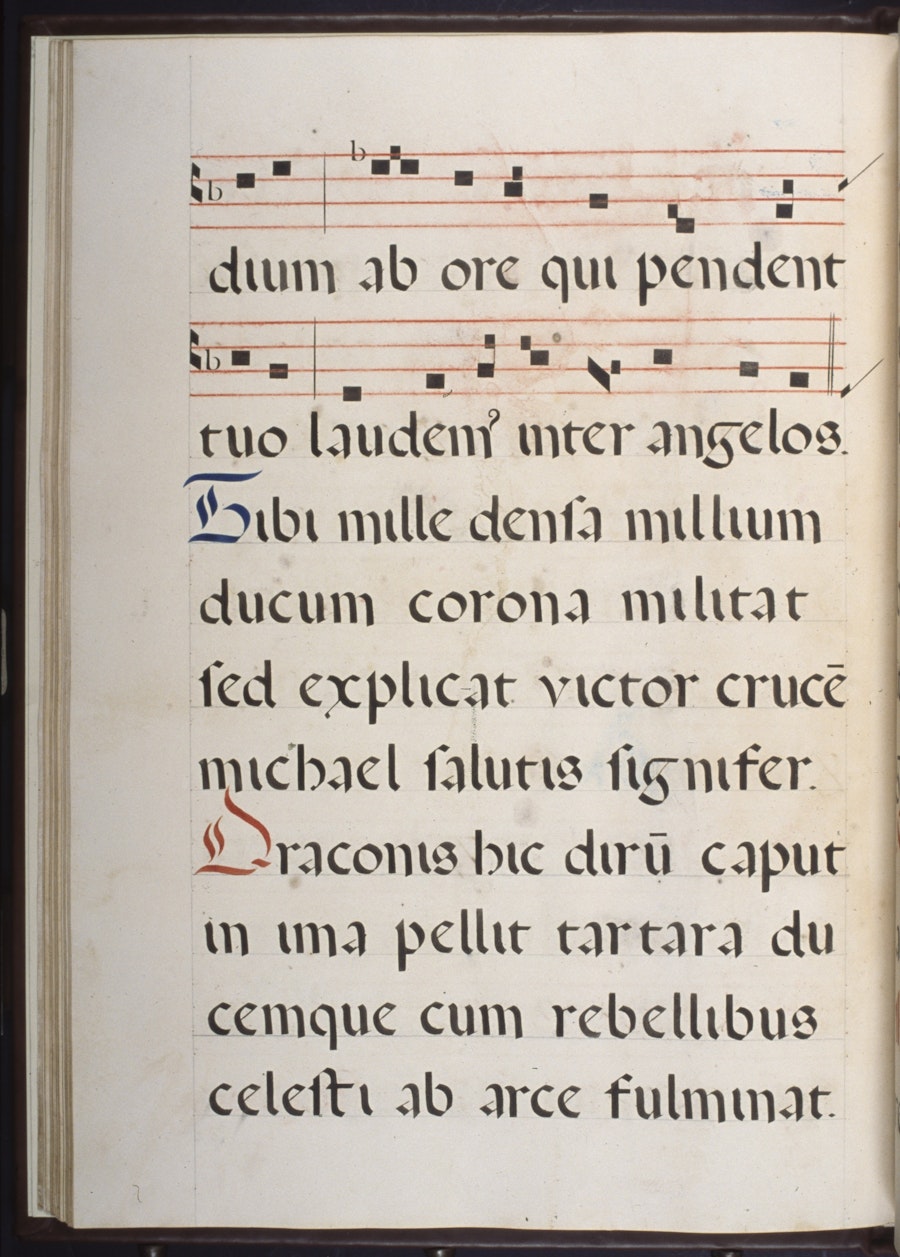 dium ab ore qui pendent
tuo laudemꝰ inter angelos.
Tibi mille denſa millium
ducum corona militat
ſed explicat victor crucē
michael ſalutis ſignifer.
Draconis hic dirū caput
in ima pellit tartara du
cemque cum rebellibus
celeſti ab arce fulminat.